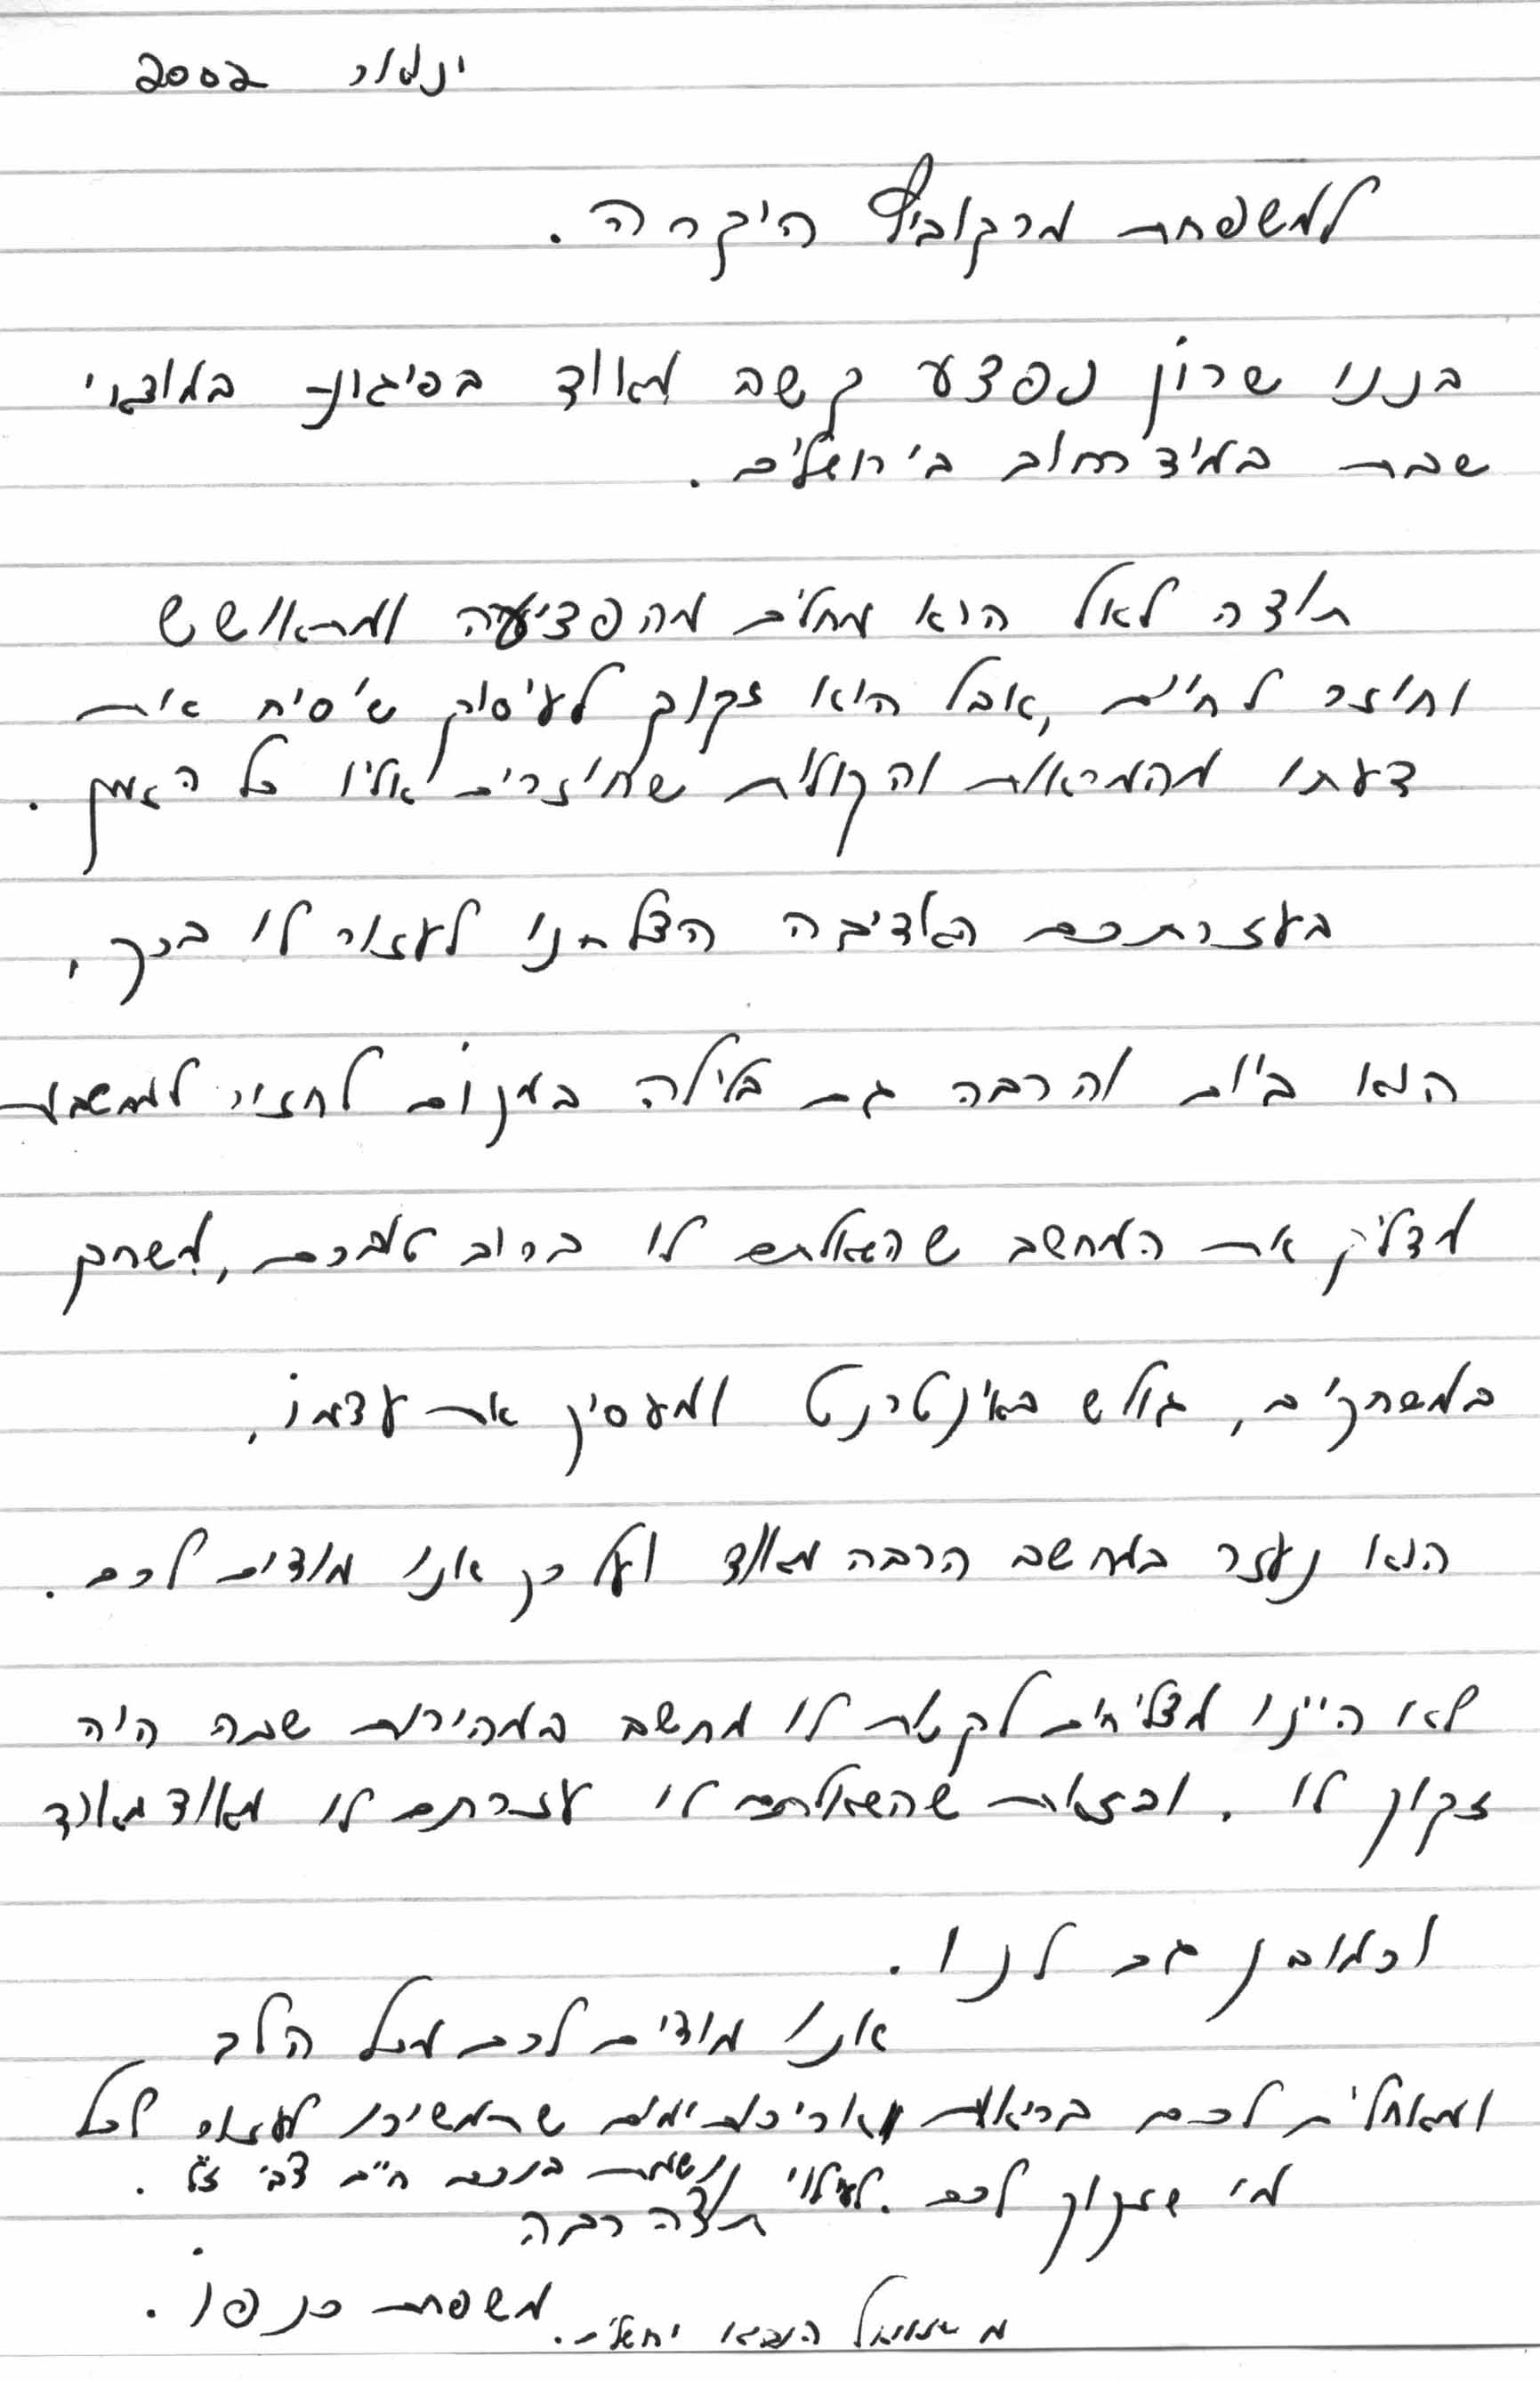 ינואר 2002
למשפחת מרקוביץ היקרה.
בננו שרון נפצע קשה מאוד בפיגוע במוצאי
שבת במידרחוב בירושלים.
תודה לאל הוא מחלים מהפציעה ומתאושש
וחוזר לחיים, אבל הוא זקוק לעיסוק שיסיח את
דעתו מהמראות והקולות שחוזרים אליו כל הזמן.
בעזרתכם האדיבה הצלחנו לעזור לו בכך,
הוא ביום והרבה גם בלילה במקום לחזור למחשבות
מדליק את המחשב שהשאלתם לו ברוב טובכם, משחק
במשחקים, גולש באינטרנט ומעסיק את עצמו,
הוא נעזר במחשב הרבה מאוד ועל כן אנו מודים לכם.
לא היינו מצליחים לקנות לו מחשב במהירות שבה היה
זקוק לו. ובזאת שהשאלתם לו עזרתם לו מאוד מאוד
וכמובן גם לנו.
אנו מודים לכם מכל הלב
ומאחלים לכם בריאות ואריכות ימים שתמשיכו לעזור לכל
מי שזקוק לכם. לעלוי נשמת בנכם חיים צבי ז"ל.
תודה רבה
משפחת כנפו.
משמואל הנביא ירושלים.